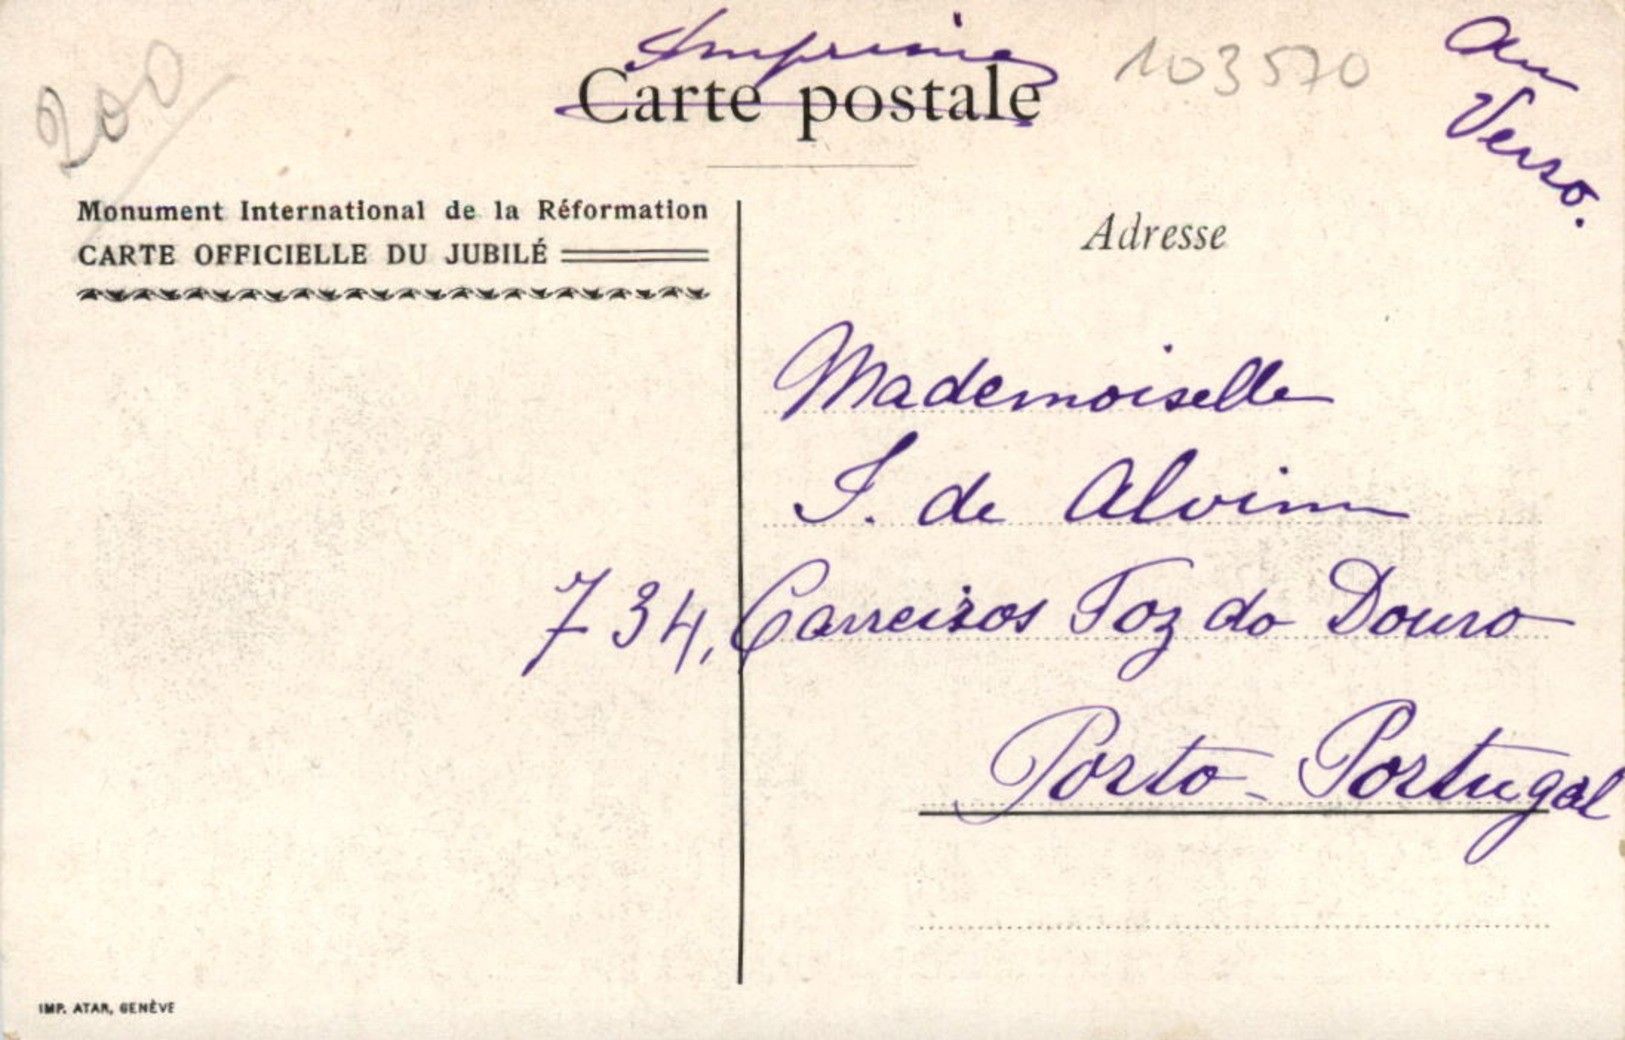 200
Imprimé
103570
Au
Verso.
Carte postale
Monument International de la Réformation
CARTE OFFICIELLE DU JUBILÉ
Adresse
Mademoiselle
I. de Alvim
734, Carreiros Foz do Douro
Porto - Portugal
IMP. ATAR, GENÈVE